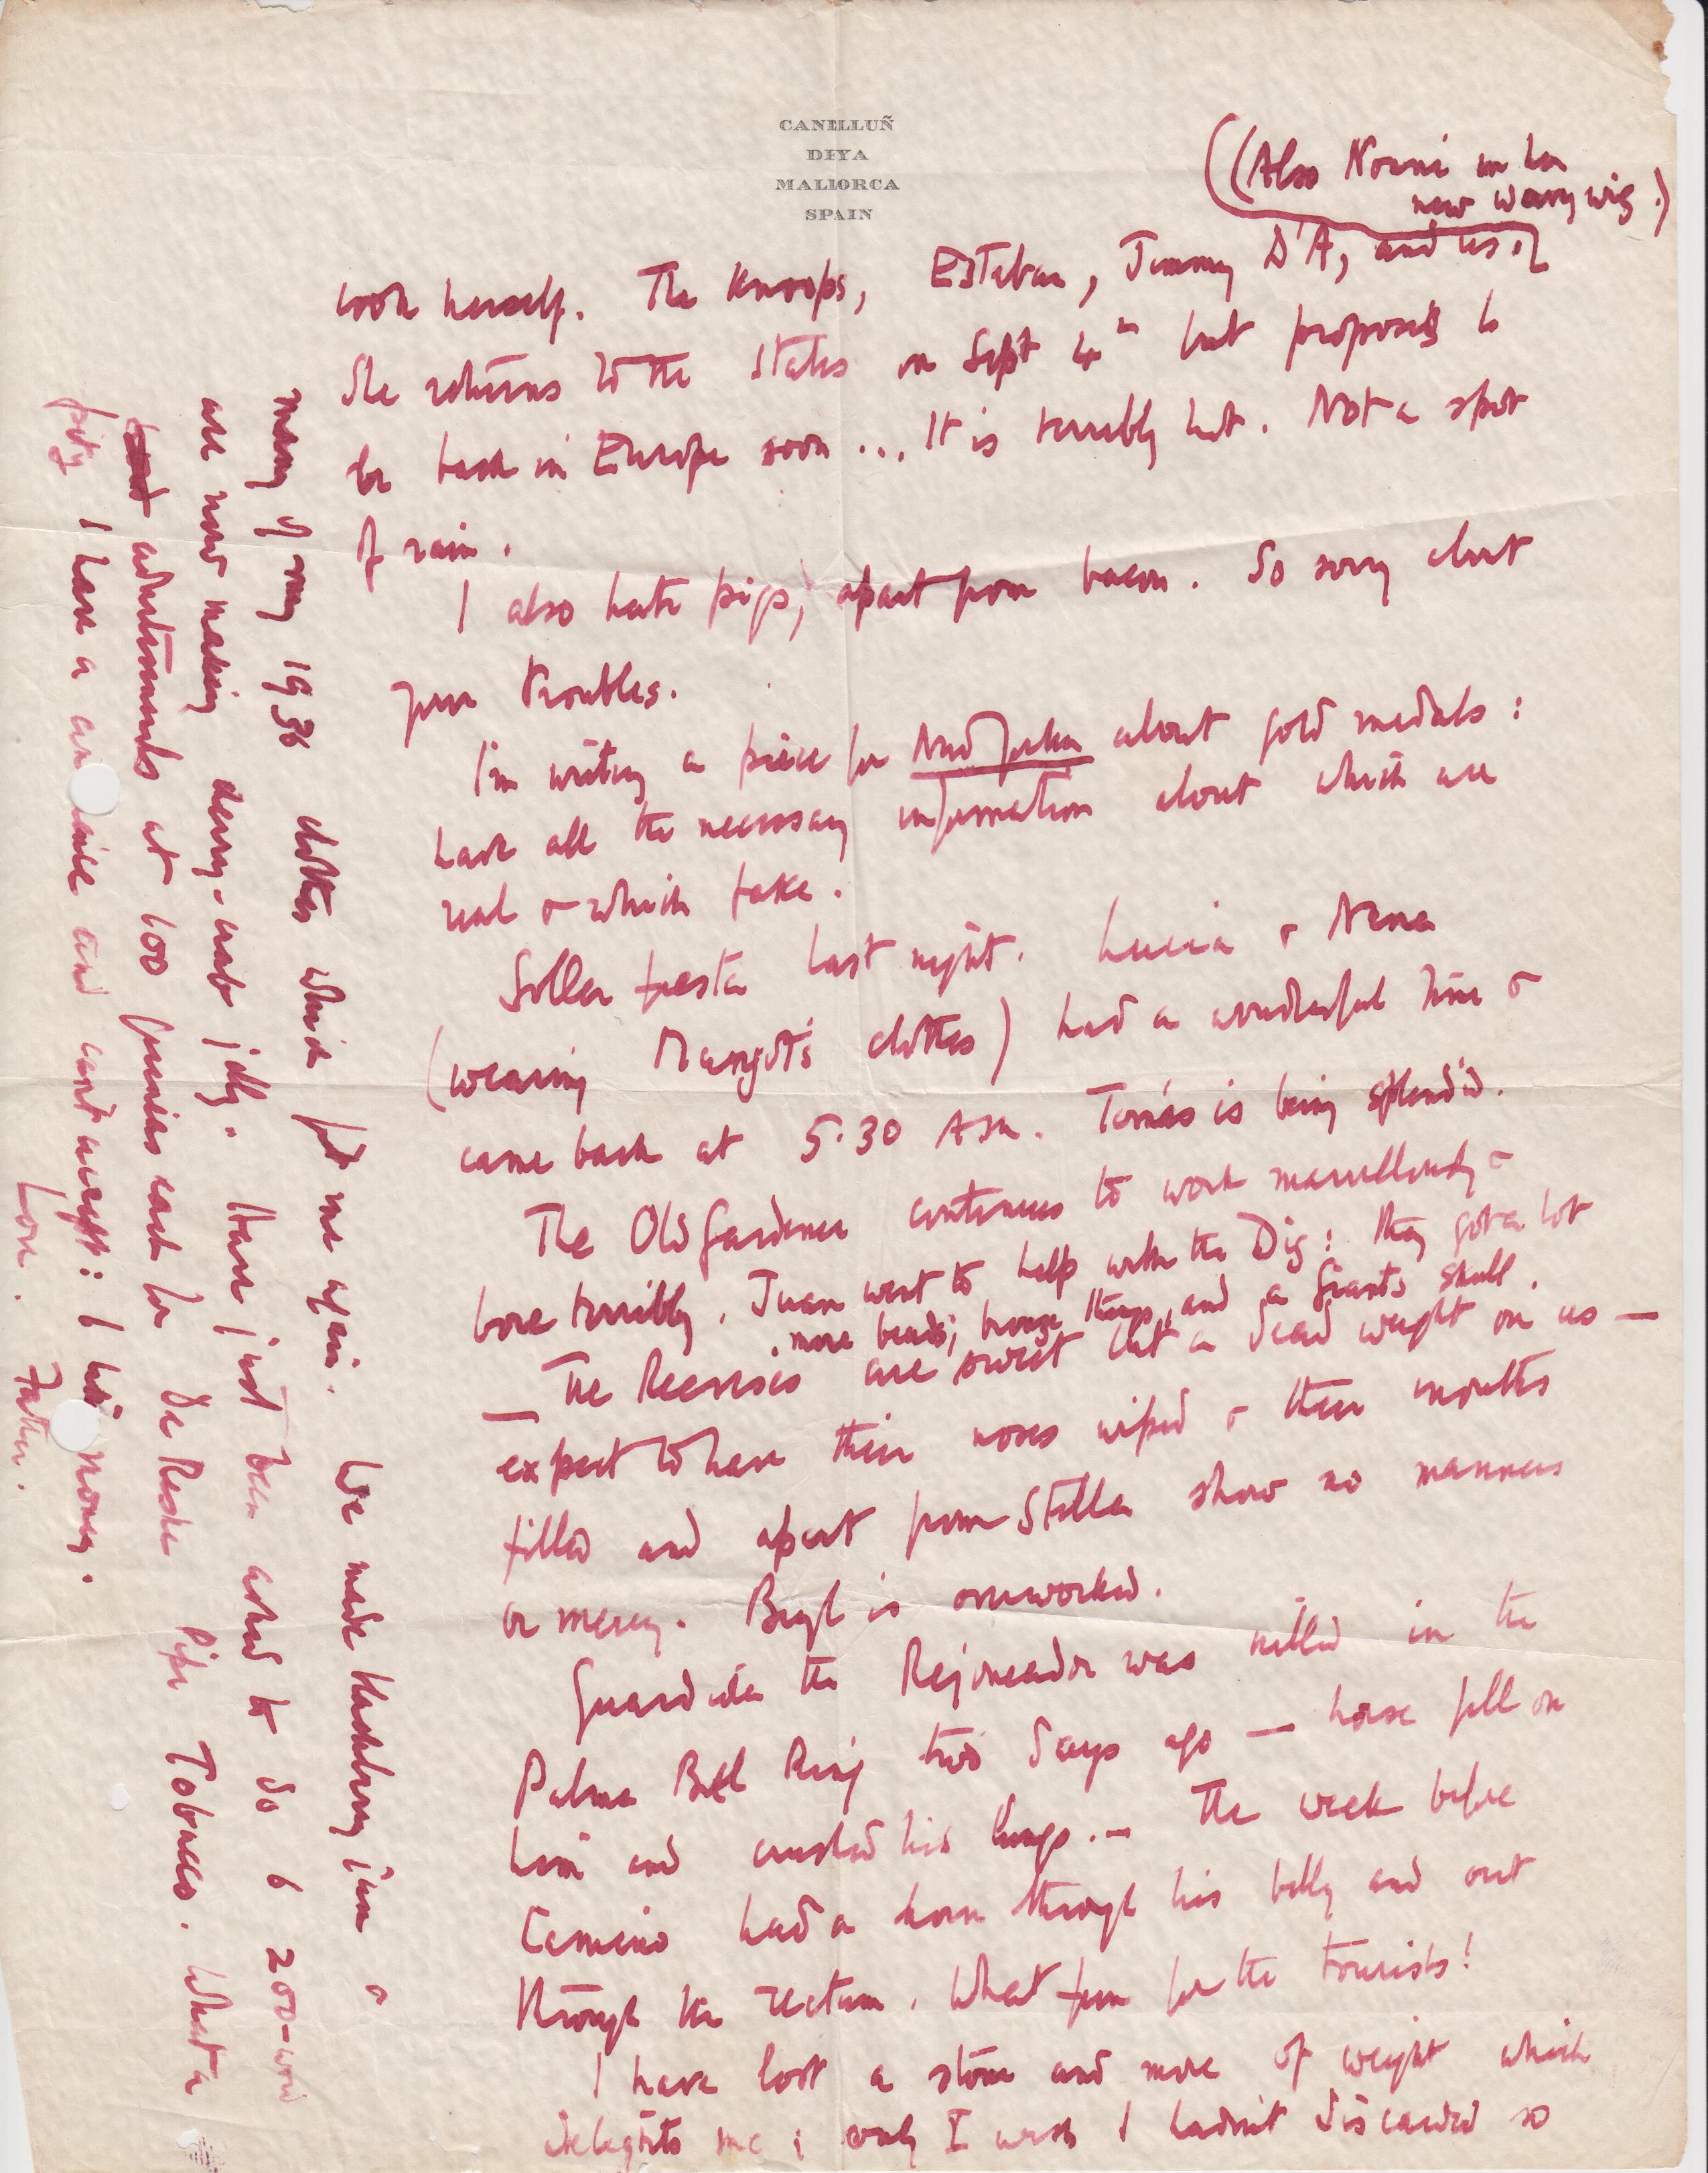 CANELLUÑ
DEYA
MALLORCA
SPAIN
(Also Norni in her
new wavy wig.)
look herself. The Knoops, Esteban, Jimmy D'A, and us.
She returns to the States on Sept 4th but proposes to
be back in Europe soon... It is terribly hot. Not a spot
of rain.
I also hate pigs, apart from bacon. So sorry about
your troubles.
I'm writing a piece for about gold medals:
have all the necessary information about which are
real & which fake.
Soller fiesta last night. Lucia & Nena
(wearing Margot's clothes) had a wonderful time &
came back at 5.30 AM. Tomás is being splendid.
The Old Gardener continues to work marvellously &
bore terribly. Juan went to help with the Dig: they got a lot
more beads, bronze things, and a Giant's skull.
— The are sweet but a dead weight on us —
expect to have their noses wiped & their mouths
filled and apart from Stella show no manners
or mercy. Beryl is overworked.
the Rejoneador was killed in the
Palma Bull Ring two days ago — horse fell on
him and crushed his lungs. — The week before
Camino had a horn through his belly and out
through the rectum. What fun for the tourists!
I have lost a stone and more of weight which
delights me; only I wish I hadn't discarded so
many of my 1936 clothes which fit me again. We made blackberry jam &
are now making jelly. Have just been asked to do 6 200-word
advertisements at 100 guineas each for De Reske Pipe Tobacco. What a
pity I have a and can't accept: I money.
Love. Father.